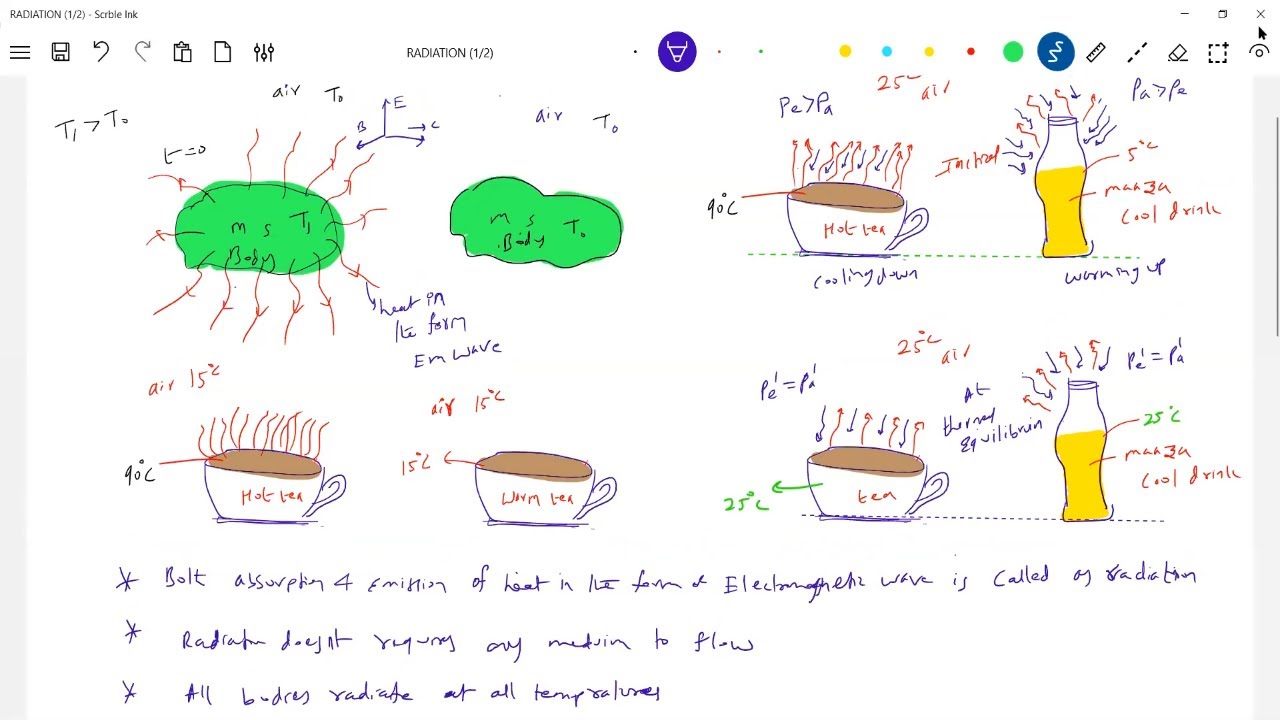 RADIATION (1/2) - Scrble Ink
RADIATION (1/2)
T₁ > T₀
air T₀
t=0
E
B
C
m s T₁
Body
heat in
the form
Em wave
air T₀
m s T₀
Body
Pe>Pa
25°C air
90°C
Hot tea
cooling down
Initial
Pa>Pe
5°C
maaza
cool drink
warming up
air 15°C
90°C
Hot tea
air 15°C
15°C
Worm tea
25°C air
Pe'=Pa'
25°C
tea
At
thermal
Equilibrium
Pe'=Pa'
25°C
maaza
cool drink
* Both absorption & Emission of heat in the form of Electromagnetic wave is called as radiation
* Radiation doesn't requires any medium to flow
* All bodies radiate at all tempratures